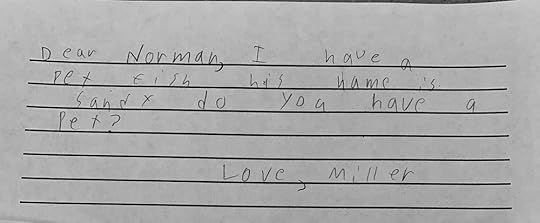 Dear Norman, I have a
Pet fish his name is
Sandx do you have a
Pet?
Love, Miller